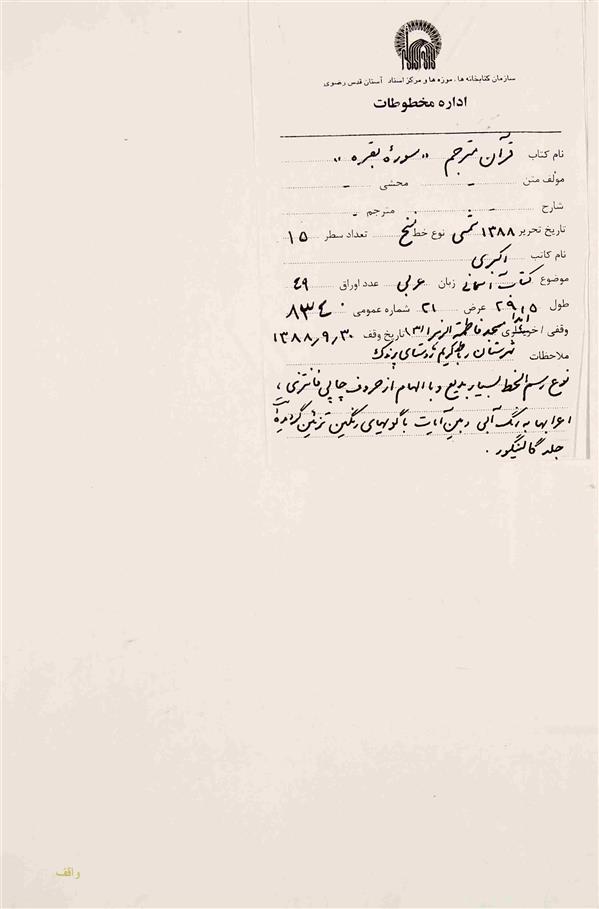 سازمان کتابخانه ها، موزه ها و مرکز اسناد آستان قدس رضوی
اداره مخطوطات
نام کتاب قرآن مترجم «سورهٔ بقره»
مؤلف متن - محشی -
شارح - مترجم -
تاریخ تحریر ۱۳۸۸ شمسی نوع خط نسخ تعداد سطر ۱۵
نام کاتب اکبری
موضوع کتاب آسمانی زبان عربی عدد اوراق ۴۹
طول ۲۹٫۵ عرض ۲۱ شماره عمومی ۸۳۴۰
وقفی / اهدا مسجد فاطمة الزهرا (۳) تاریخ وقف ۱۳۸۸٫۹٫۳۰
ملاحظات شهرستان رباط کریم روستای پرندک
نوع رسم الخط بسیار بدیع و با الهام از حروف چاپی فانتزی،
اعرابها به رنگ آبی و بین آیات با گویهای رنگین تزئین گردیده
جلد گالینگور.
واقف